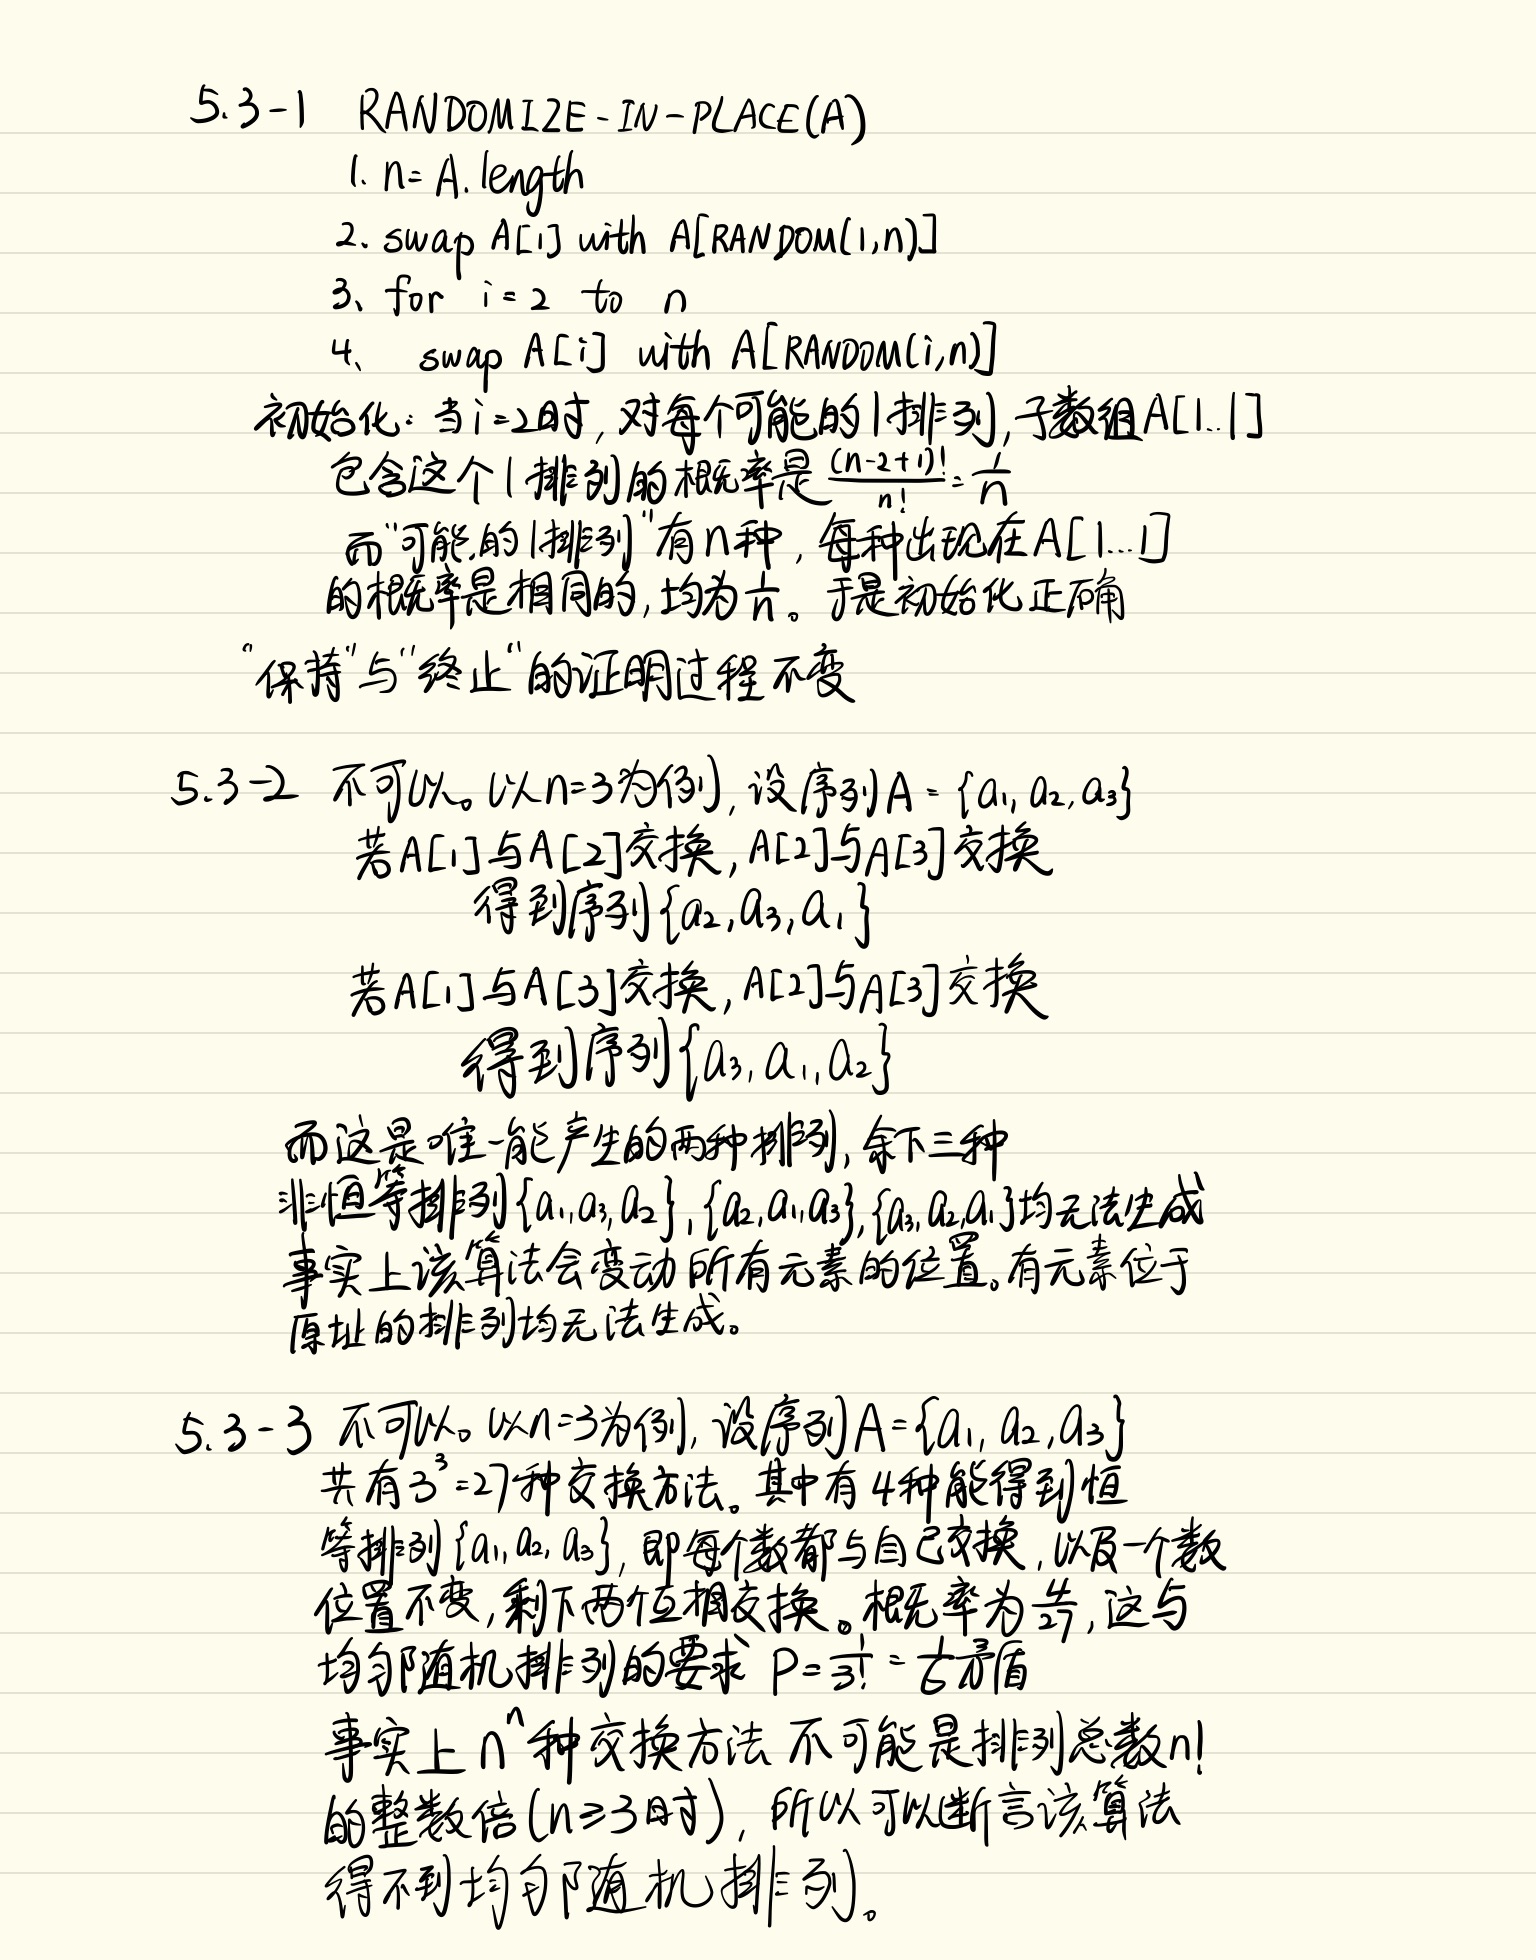 5.3-1 RANDOMIZE-IN-PLACE(A)
1. n= A.length
2. swap A[1] with A[RANDOM(1,n)]
3、for i=2 to n
4、 swap A[i] with A[RANDOM(i,n)]
初始化：当i=2时，对每个可能的1排列，子数组A[1..1]
包含这个1排列的概率是 (n-2+1)!/n! = 1/n
而"可能的1排列"有n种，每种出现在A[1...1]
的概率是相同的，均为1/n。于是初始化正确
"保持"与"终止"的证明过程不变
5.3-2 不可以。以n=3为例，设序列A={a₁, a₂, a₃}
若A[1]与A[2]交换，A[2]与A[3]交换
得到序列{a₂, a₃, a₁}
若A[1]与A[3]交换，A[2]与A[3]交换
得到序列{a₃, a₁, a₂}
而这是唯一能产生的两种排列，余下三种
非恒等排列{a₁,a₃,a₂}, {a₂,a₁,a₃}, {a₃,a₂,a₁}均无法生成
事实上该算法会变动所有元素的位置。有元素位于
原址的排列均无法生成。
5.3-3 不可以。以n=3为例，设序列A={a₁, a₂, a₃}
共有3³=27种交换方法。其中有4种能得到恒
等排列{a₁, a₂, a₃}，即每个数都与自己交换，以及一个数
位置不变，剩下两个互相交换。概率为4/27，这与
均匀随机排列的要求 P=1/3!=1/6矛盾
事实上 nⁿ种交换方法 不可能是排列总数n!
的整数倍(n≥3时)，所以可以断言该算法
得不到均匀随机排列。